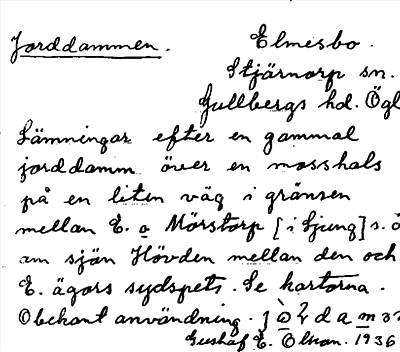 Jorddammen. Elmesbo.
Stjärnorp sn.
Gullbergs hd. Ögl
Lämningar efter en gammal
jorddamm över en mosshals
på en liten väg i gränsen
mellan E. o Mörstorp [i Ljung] s. ö
om sjön Hövden mellan den och
E. ägors sydspets. Se kartorna.
Obekant användning.
Gustaf E. Olsson. 1936